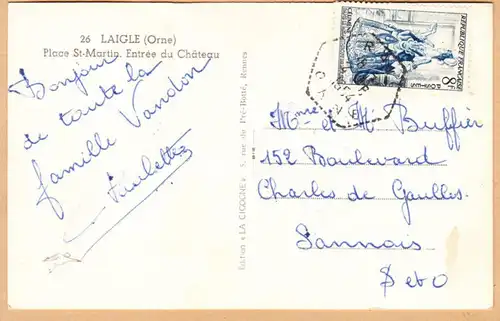 26 LAIGLE (Orne)
Place St-Martin. Entrée du Château
Bonjour
de toute la
famille Vandon
Paulette
Edition "LA CIGOGNE", 5, rue du Pré-Botté, Rennes
REPUBLIQUE FRANÇAISE
8F
Mme et M Buffier
152 Boulevard
Charles de Gaulles.
Sannois
S et O